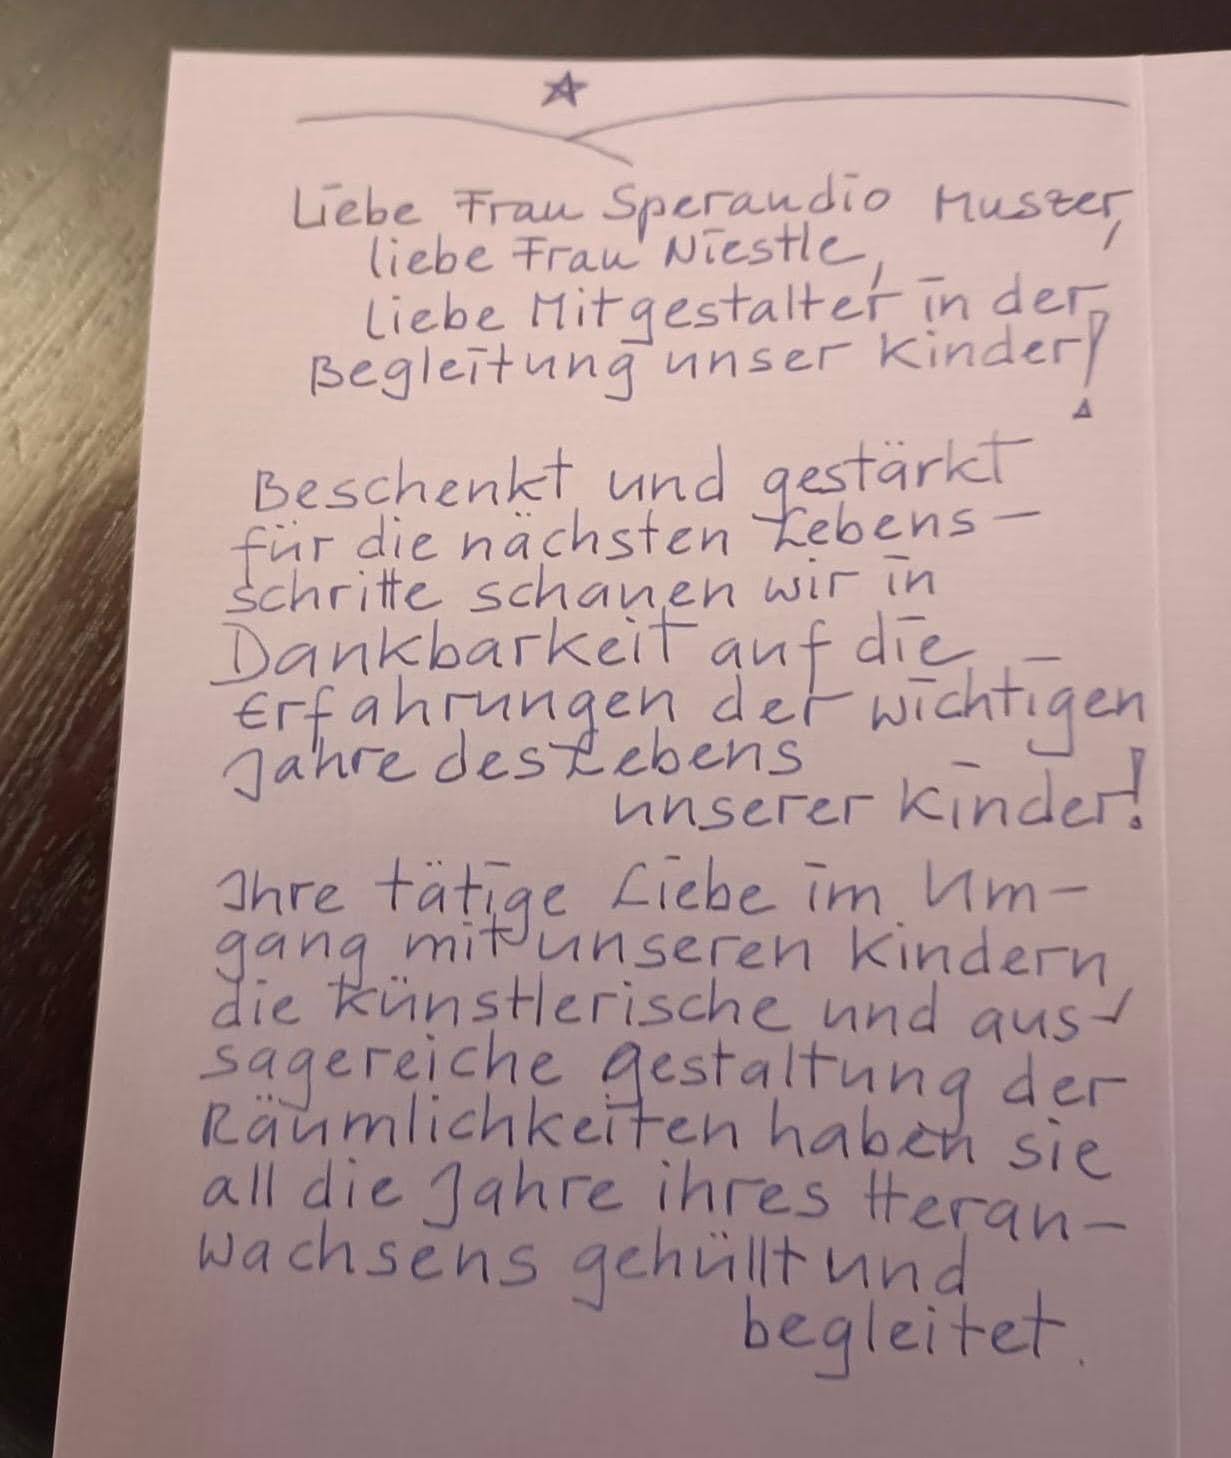 Liebe Frau Sperandio Muster,
liebe Frau Niestle,
Liebe Mitgestalter in der
Begleitung unser Kinder!
Beschenkt und gestärkt
für die nächsten Lebens-
schritte schauen wir in
Dankbarkeit auf die
Erfahrungen der wichtigen
Jahre des Lebens
unserer Kinder!
Ihre tätige Liebe im Um-
gang mit unseren Kindern,
die künstlerische und aus-
sagereiche Gestaltung der
Räumlichkeiten haben sie
all die Jahre ihres Heran-
wachsens gehüllt und
begleitet.